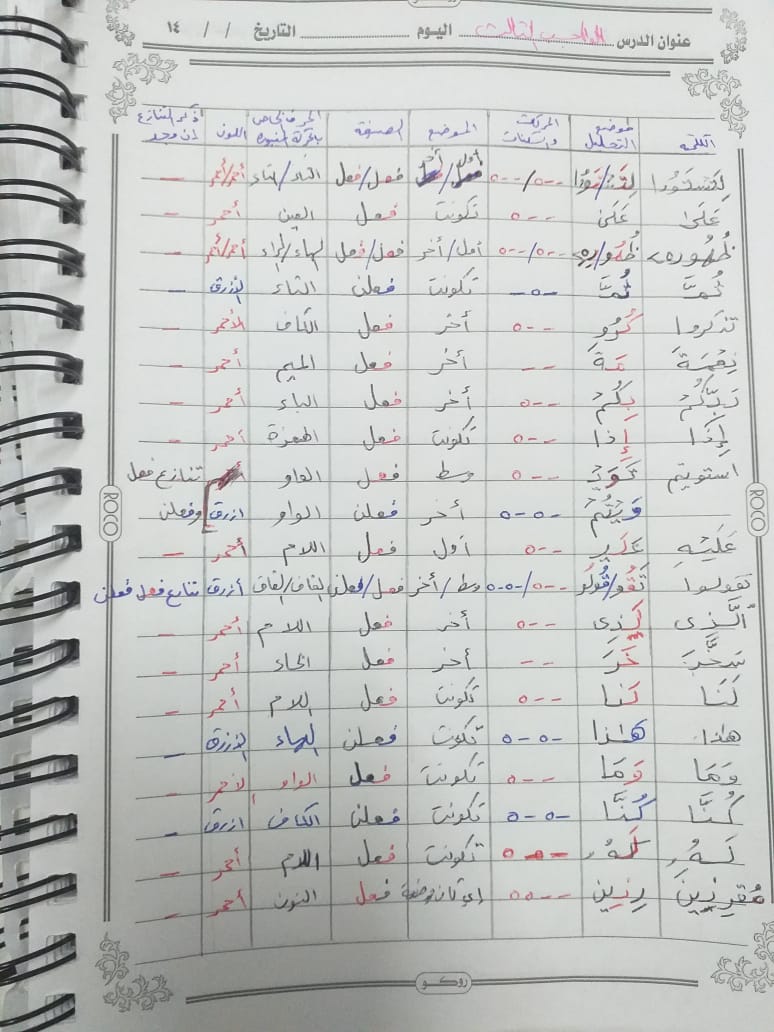 روكو
عنوان الدرس الواجب الثالث اليوم التاريخ / / ١٤
الكلمة موضع التحليل الحركات والسكنات الموضع الصنف اللون
لِتَسْتَوُوا لِتَسْـ/تَوُوا --٥/--٥ أول/أخر فعل/فعل التاء/التاء أحمر/أحمر —
عَلَىٰ عَلَىٰ --٥ تكونت فعل العين أحمر —
ظُهُورِهِ ظُهُو/رِهِ --٥/--٥ أول/أخر فعل/فعل الهاء/الراء أحمر/أحمر —
ثُمَّ ثُمَّ -٥- تكونت فعلن الثاء الأزرق —
تذكروا كُرُو --٥ أخر فعل الكاف الأحمر —
نِعْمَةَ مَةَ -- أخر فعل الميم أحمر —
رَبِّكُمْ بِكُمْ --٥ أخر فعل الباء أحمر —
إِذَا إِذا --٥ تكونت فعل الهمزة أحمر —
استويتم تَوَيْـ --٥ وسط فعل الواو تنازع فعل
— وَيْتُمْ -٥-٥ أخر فعلن الواو ازرق وفعلن
عَلَيْهِ عَلَيْـ --٥ أول فعل اللام أحمر —
تقولوا تَقُو/قُولُو --٥/-٥-٥ وسط/أخر فعل/فعلن القاف/القاف أزرق تنازع فعل فعلن
ٱلَّذِى لَذِى --٥ أخر فعل اللام أحمر —
سَخَّرَ خَرَ -- أخر فعل الخاء أحمر —
لَنَا لَنا --٥ تكونت فعل اللام أحمر —
هذا هَاذا -٥-٥ تكونت فعلن الهاء الأزرق —
وَمَا وَمَا --٥ تكونت فعل الواو الأحمر —
كُنَّا كُنَّا -٥-٥ تكونت فعلن الكاف ازرق —
لَهُۥ لَهُۥ --٥ تكونت فعل اللام أحمر —
مُقْرِنِينَ رِنِين --٥٥ فعل النون أحمر —
ROCO
ROCO
روكو